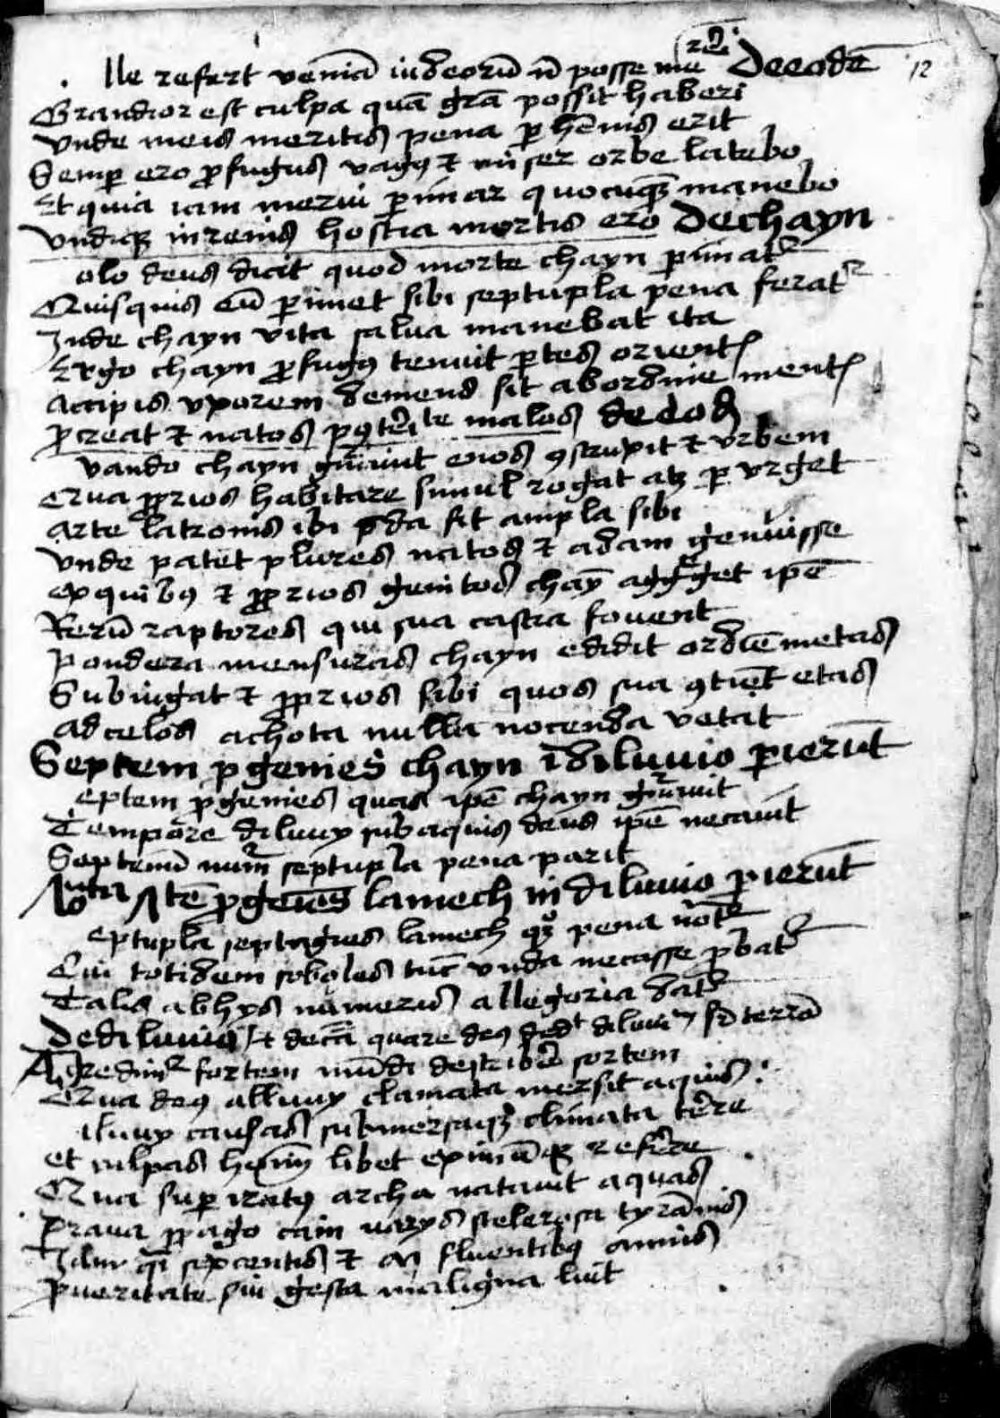 lle refert veniā iudeorū n̄ posse me reri De eodē 12
Grandior est culpa quā gr̄a possit haberi
Vnde meis meritis pena perhēnis erit
Semper ero profugus vagus et miser orbe latebo
Et quia iam merui perimar quocūque manebo
Vndique in renis hostia mortis ero De chayn
olo deus dicit quod morte chayn perimatur
Quisquis eū perimet sibi septupla pena feratur
Inde chayn vita salua manebat ita
Ergo chayn profugus tenuit partes orientis
Accipis vxorem demens sit ab ordine mentis
procreat et natos malos de eod
vando chayn genuit eios construxit et vrbem
Qua proprios habitare simul rogat atque perurget
Arte latronis ibi preda fit ampla sibi
Vnde patet plures natos et adam genuisse
ex quibus et proprios genitos chayn aggreget ipē
Rerū raptores qui sua castra fouent
Pondera mensuras chayn edidit ordīe metas
Subiugat et proprios sibi quos sua etas
Ad celos achota nulla nocenda vetat
Septem progenies chayn ī diluuio perierūt
eptem progenies quas ipē chayn genuit
Tempore diluuy sub aquis deus ipē necauit
Septenū numerum septupla pena parit
Nota progenies lamech in diluuio perierūt
eptupla septagies lamech pena notatur
Qui totidem soboles tunc vnda necasse probatur
Talis ab hys numerus allegoria datur
De diluuio et quare deus diluuiū super terrā
Agredimur fortem mūdi describere sortem
Qua deus alluuy clamata mersit aquis
iluuy causas submersaque climata terre
et culpas hominum libet referre
Qua super iratus archa natauit aquas
Praua propago cain varys scelerosa tyrānis
et fluentibus annis
gesta maligna luit